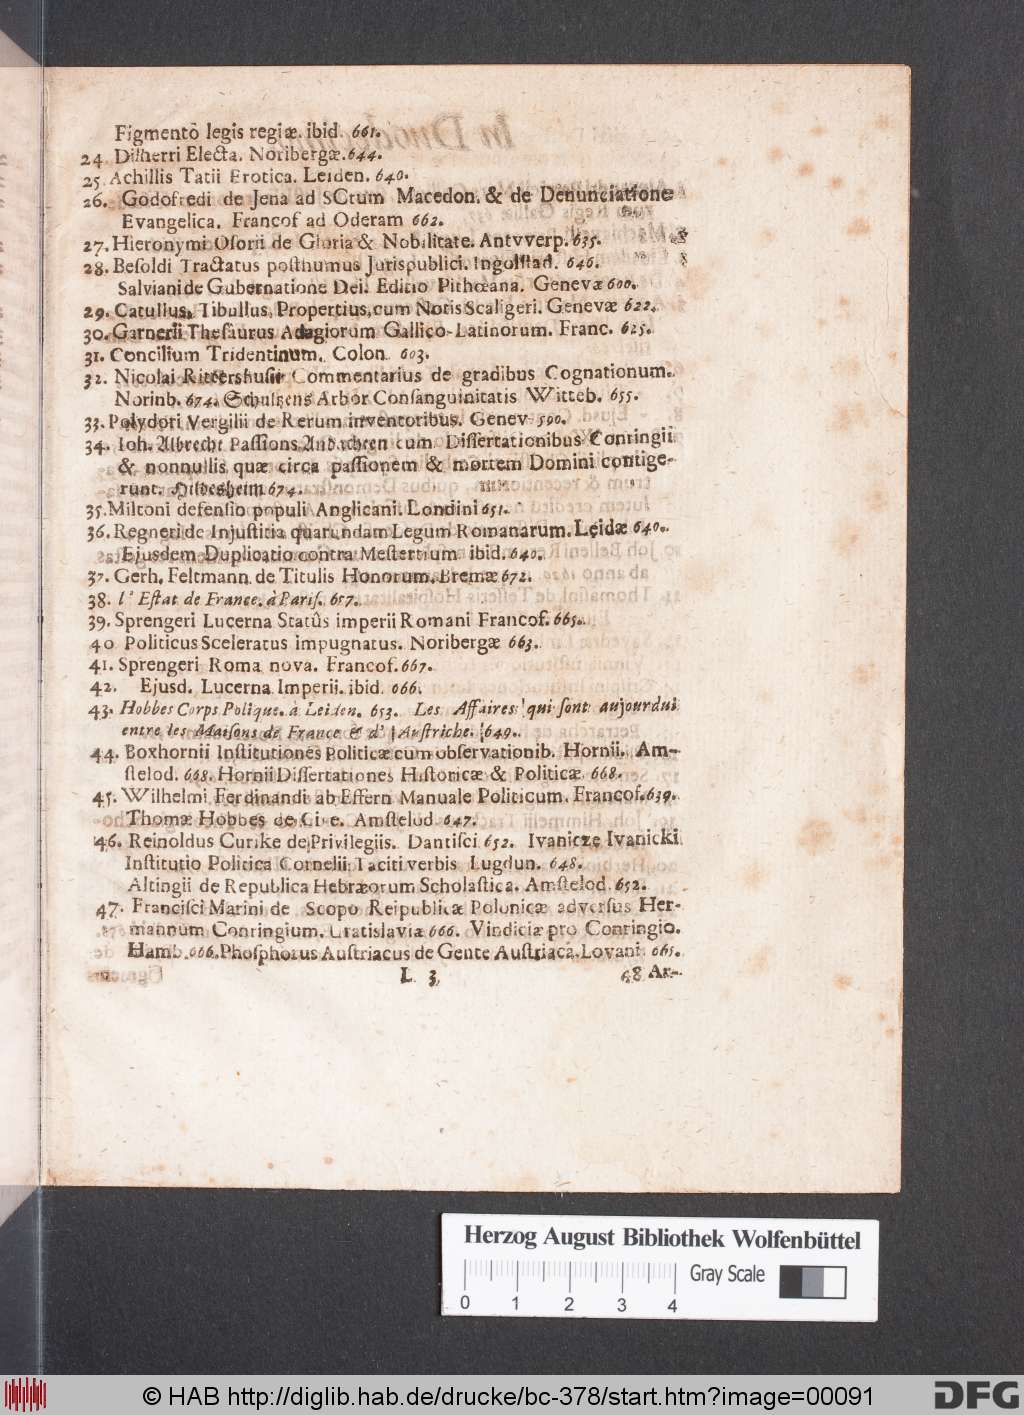 Figmentô legis regiæ. ibid. 661.
24. Dilherri Electa. Noribergæ. 644.
25. Achillis Tatii Erotica. Leiden. 640.
26. Godofredi de Jena ad SCtum Macedon. & de Denunciatione
Evangelica. Francof ad Oderam 662.
27. Hieronymi Osorii de Gloria & Nobilitate. Antvverp. 635.
28. Besoldi Tractatus posthumus Jurispublici. Ingolstad. 646.
Salviani de Gubernatione Dei. Editio Pithœana. Genevæ 600.
29. Catullus, Tibullus, Propertius, cum Notis Scaligeri. Genevæ 622.
30. Garnerii Thesaurus Adagiorum Gallico-Latinorum. Franc. 625.
31. Concilium Tridentinum. Colon. 603.
32. Nicolai Rittershusii Commentarius de gradibus Cognationum.
Norinb. 674. Schultzens Arbor Consanguinitatis Witteb. 655.
33. Polydori Vergilii de Rerum inventoribus. Genev. 590.
34. Ioh. Albrecht Passions Andachten cum Dissertationibus Contingii
& nonnullis quæ circa passionem & mortem Domini contige-
runt. Hildesheim 674.
35. Miltoni defensio populi Anglicani. Londini 651.
36. Regneri de Injustitia quarundam Legum Romanarum. Leidæ 640.
Ejusdem Duplicatio contra Mestertium ibid. 640.
37. Gerh. Feltmann de Titulis Honorum. Bremæ 672.
38. l' Estat de France. à Paris. 657.
39. Sprengeri Lucerna Statûs imperii Romani Francof. 665.
40 Politicus Sceleratus impugnatus. Noribergæ 663.
41. Sprengeri Roma nova. Francof. 667.
42. Ejusd. Lucerna Imperii. ibid. 666.
43. Hobbes Corps Polique. à Leiden. 653. Les Affaires qui sont aujourdui
entre les Maisons de France & d' Austriche. 649.
44. Boxhornii Institutiones Politicæ cum observationib. Hornii. Am-
stelod. 668. Hornii Dissertationes Historicæ & Politicæ 668.
45. Wilhelmi Ferdinandi ab Effern Manuale Politicum. Francof. 639.
Thomæ Hobbes de Cive. Amstelod. 647.
46. Reinoldus Curike de Privilegiis. Dantisci 652. Ivanicze Ivanicki
Institutio Politica Cornelii Taciti verbis Lugdun. 648.
Altingii de Republica Hebræorum Scholastica. Amstelod. 652.
47. Francisci Marini de Scopo Reipublicæ Polonicæ adversus Her-
mannum Conringium. Uratislaviæ 666. Vindiciæ pro Conringio.
Hamb. 666. Phosphorus Austriacus de Gente Austriaca. Lovani. 665.
L 3 68 Ar-
Herzog August Bibliothek Wolfenbüttel
Gray Scale
0 1 2 3 4
© HAB http://diglib.hab.de/drucke/bc-378/start.htm?image=00091
DFG